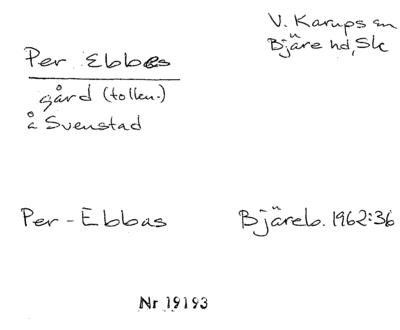 V. Karups sn
Bjäre hd, Sk
Per Ebbes
gård (tolkn.)
å Svenstad
Per-Ebbas Bjäreb. 1962:36
Nr 19193